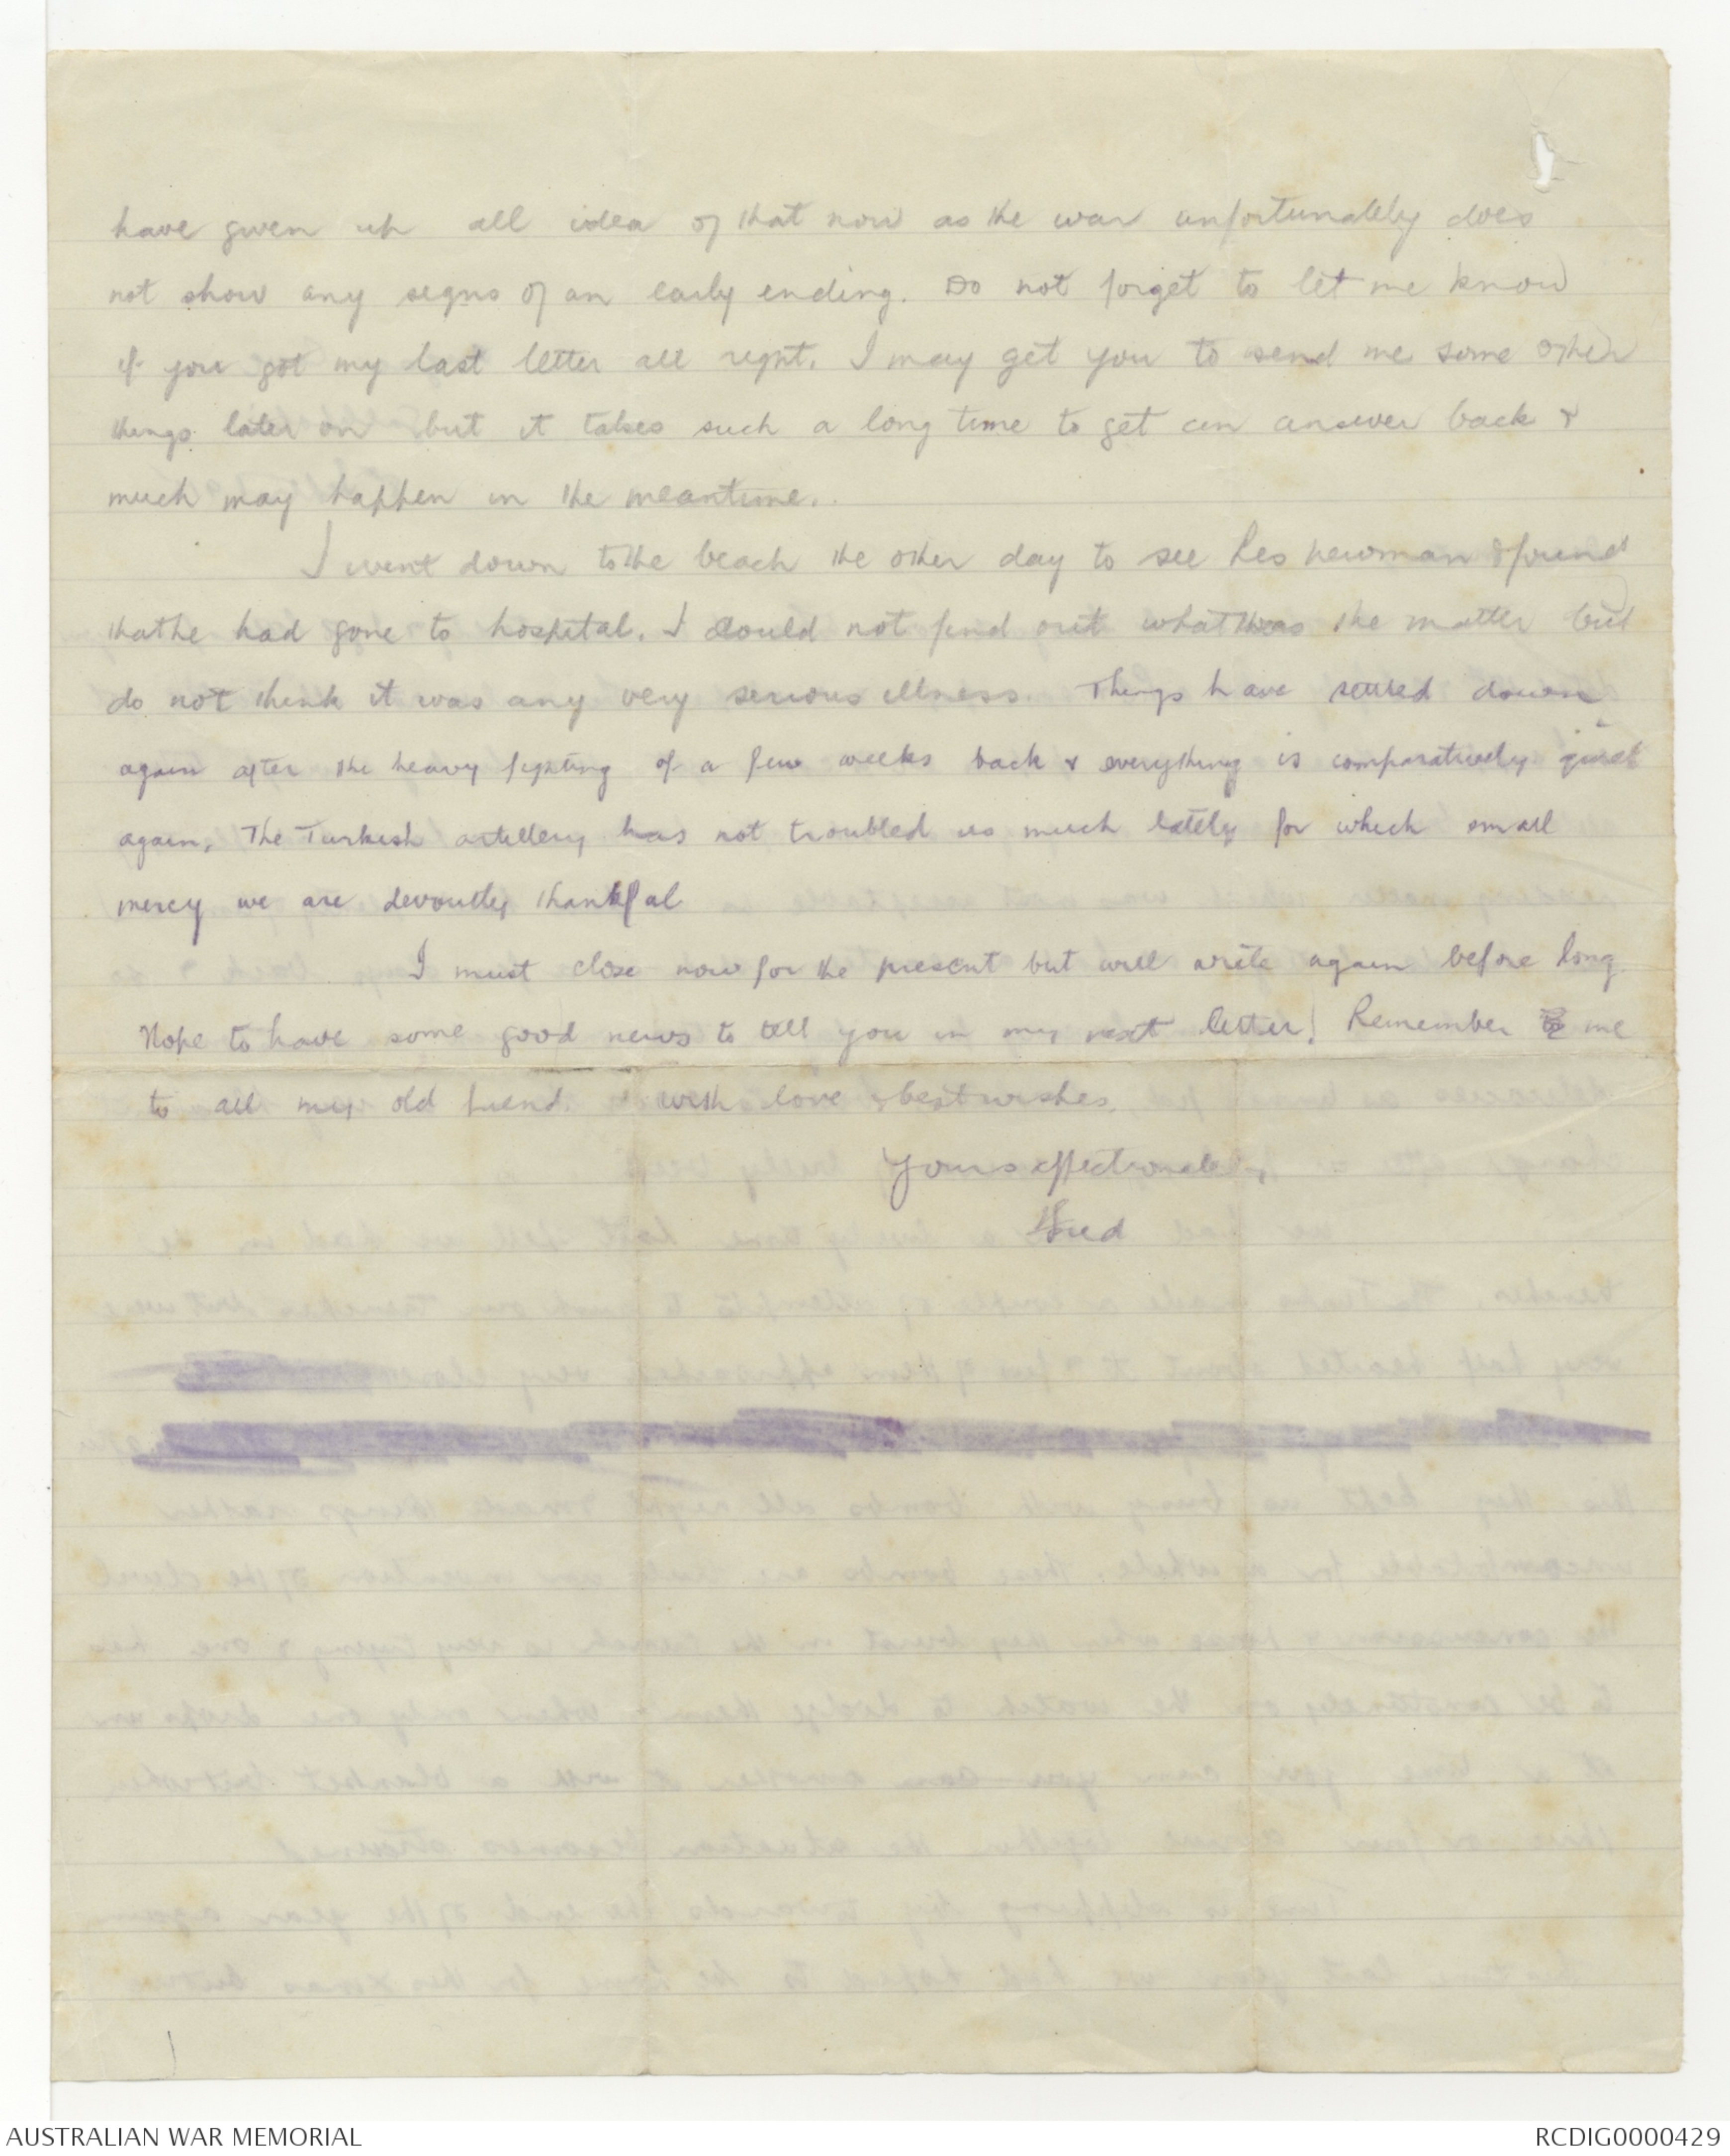 have given up all idea of that now as the war unfortunately does
not show any signs of an early ending. Do not forget to let me know
if you got my last letter all right. I may get you to send me some other
things later on but it takes such a long time to get an answer back &
much may happen in the meantime.
I went down to the beach the other day to see Les Newman & found
that he had gone to hospital. I could not find out what was the matter but
do not think it was any very serious illness. Things have settled down
again after the heavy fighting of a few weeks back & everything is comparatively quiet
again. The Turkish artillery has not troubled us much lately for which small
mercy we are devoutly thankful
I must close now for the present but will write again before long.
Hope to have some good news to tell you in my next letter! Remember me
to all my old friend. With love & best wishes,
Yours affectionately,
Fred
AUSTRALIAN WAR MEMORIAL
RCDIG0000429